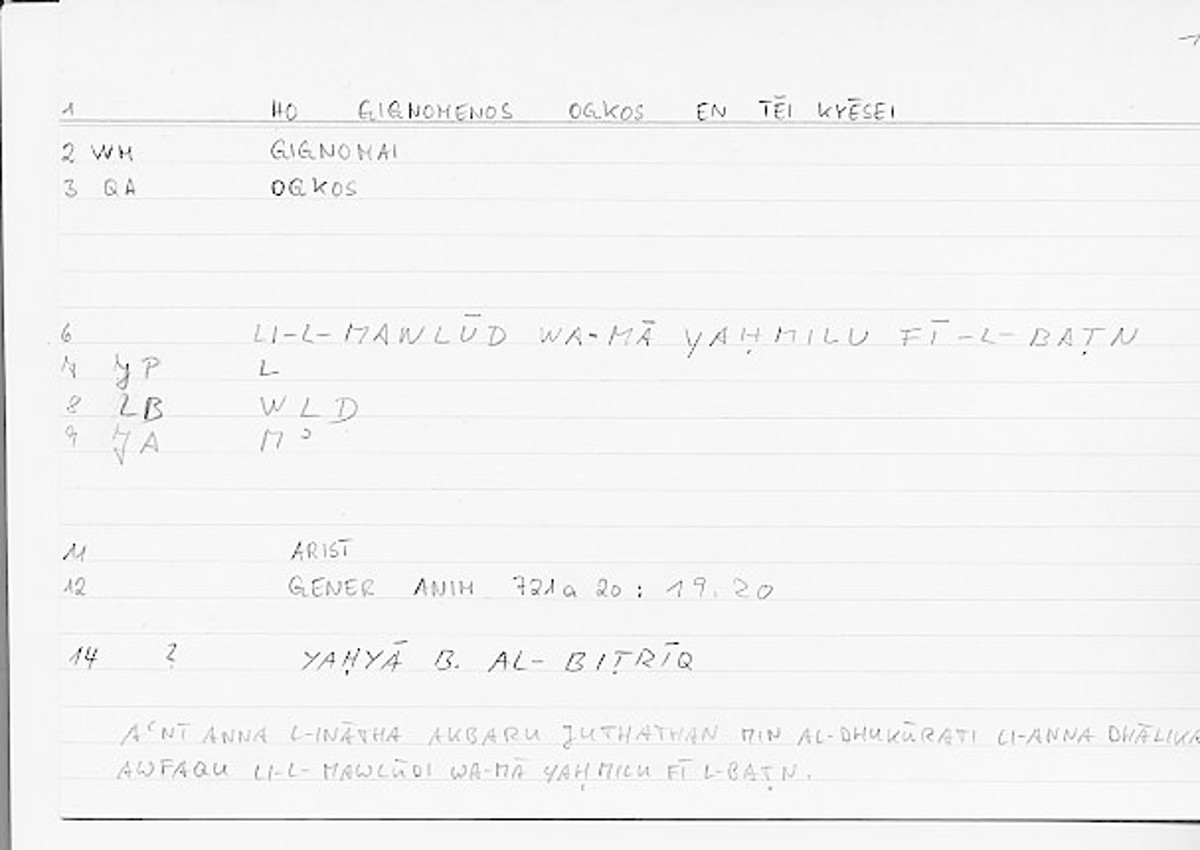 1 HO GIGNOMENOS OGKOS EN TĒI KYĒSEI
2 WM GIGNOMAI
3 QA OGKOS
6 LI-L-MAWLŪD WA-MĀ YAḤMILU FĪ-L-BAṬN
7 JP L
8 LB WLD
9 JA Mʾ
11 ARIST
12 GENER ANIM 721a 20 : 19.20
14 2 YAḤYĀ B. AL-BIṬRĪQ
AʿNĪ ANNA L-INĀTHA AKBARU JUTHATHAN MIN AL-DHUKŪRATI LI-ANNA DHĀLIKA
AWFAQU LI-L-MAWLŪDI WA-MĀ YAḤMILU FĪ L-BAṬN.